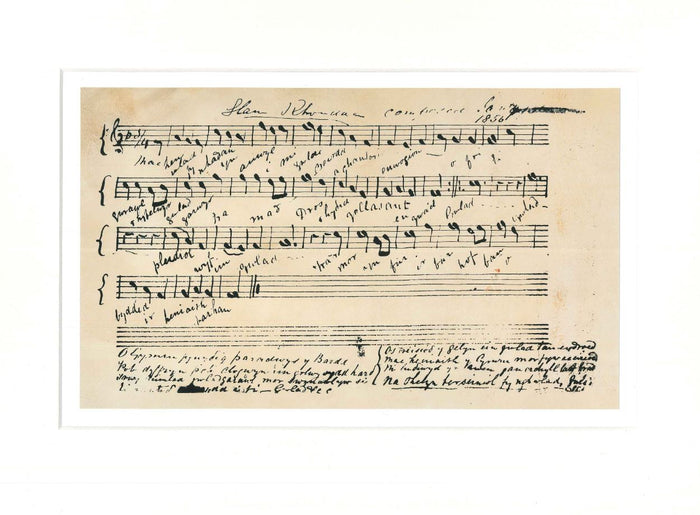 Glan Rhondda composed Jany
1856
Mae hen wlad fy nhadau yn anwyl i mi gwlad Beirdd a chantorion enwogion o fri
gwrawl rhyfelwyr gwlad garwyr tra mad Dros rhyddid gollasant eu gwaed Gwlad
pleidiol wyf im gwlad Tra mor yn fur ir bur hoff bau o
bydded ir heniaith parhau
O Gymru fynyddig paradwys y Bardd
Pob dyffryn pob clogwyn im golwg sydd hardd
Trwy deimlad gwladgarol mor swynol yw si
Os treisiodd y gelyn ein gwlad tan ei droed
Mae heniaith y Cymru mor fyw ac erioed
Ni luddiwyd yr awen gan erchyll law brad
Na thelyn berseiniol fy ngwlad